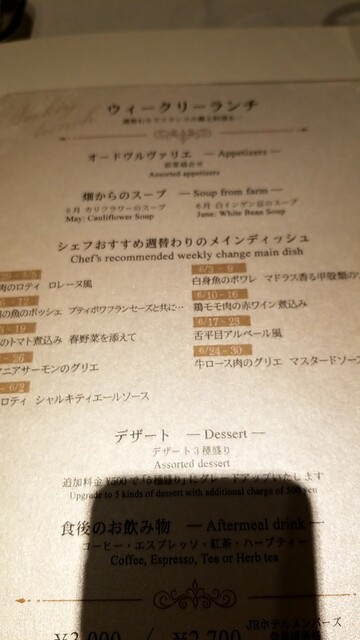 ウィークリーランチ
オードヴルヴァリエ — Appetizers —
前菜盛合せ
Assorted appetizers
畑からのスープ — Soup from farm —
5月 カリフラワーのスープ 6月 白インゲン豆のスープ
May: Cauliflower Soup June: White Bean Soup
シェフおすすめ週替わりのメインディッシュ
Chef's recommended weekly change main dish
肉のロティ ロレーヌ風
の魚のポッシェ プティポワフランセーズと共に…
のトマト煮込み 春野菜を添えて
マニアサーモンのグリエ
6/2
ロティ シャルキティエールソース
白身魚のポワレ マドラス香る甲殻類の
6/10 - 16
鶏モモ肉の赤ワイン煮込み
6/17 - 23
舌平目アルベール風
6/24 - 30
牛ロース肉のグリエ マスタードソース
デザート — Dessert —
デザート3種盛り
Assorted dessert
追加料金 ¥500で「5種盛り」にグレードアップいたします
Upgrade to 5 kinds of dessert with additional charge of 500 yen
食後のお飲み物 — Aftermeal drink —
コーヒー・エスプレッソ・紅茶・ハーブティー
Coffee, Espresso, Tea or Herb tea
¥3,000 / ¥2,700 JRホテルメンバーズ